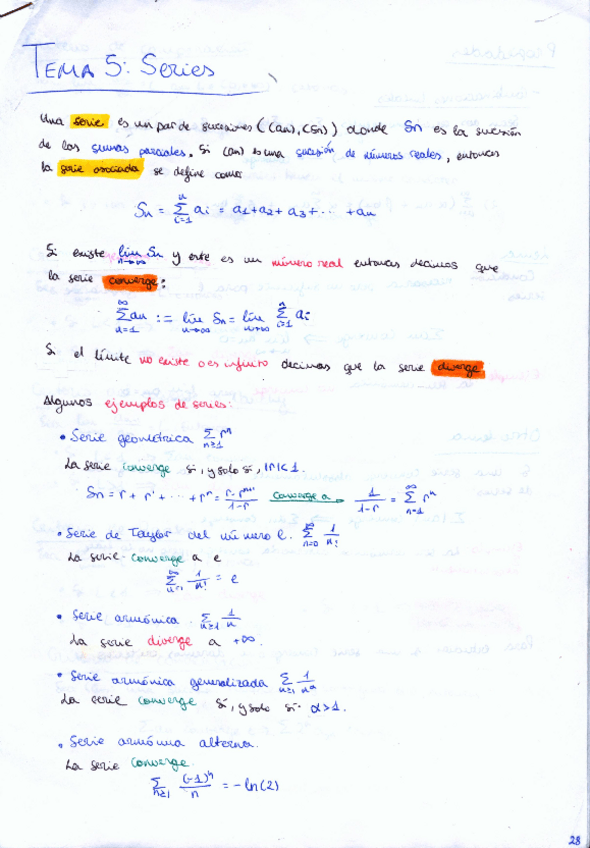 TEMA 5: Series
Una serie es un par de sucesiones ((an), (Sn)) donde Sn es la sucesión
de las sumas parciales. Si (an) es una sucesión de números reales, entonces
la serie asociada se define como
Sn = ∑_{i=1}^{n} ai = a1+a2+a3+··· +an
Si existe lim_{n→∞} Sn y este es un número real entonces decimos que
la serie converge:
∑_{n=1}^{∞} an := lim_{n→∞} Sn = lim_{n→∞} ∑_{i=1}^{n} ai
Si el límite no existe o es infinito decimos que la serie diverge
Algunos ejemplos de series:
• Serie geométrica ∑_{n≥1} r^n
La serie converge si, y solo si, |r|<1.
Sn = r + r' + ··· + r^n = (r - r^{n+1})/(1-r) converge a → 1/(1-r) = ∑_{n=1}^{∞} r^n
• Serie de Taylor del número e. ∑_{n=0}^{∞} 1/n!
La serie converge a e
∑_{n=1}^{∞} 1/n! = e
• Serie armónica ∑_{n≥1} 1/n
La serie diverge a +∞.
• Serie armónica generalizada ∑_{n≥1} 1/n^α
La serie converge si, y solo si α>1.
• Serie armónica alterna.
La serie converge.
∑_{n≥1} (-1)^n/n = -ln(2)
28